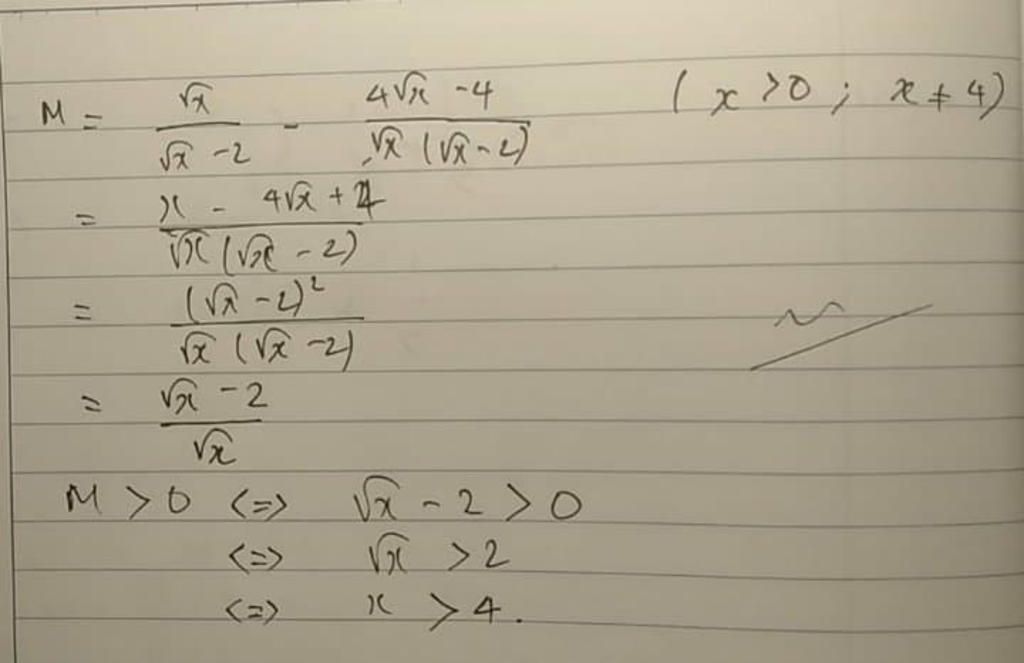 M = √x / (√x - 2) - (4√x - 4) / (√x (√x - 2)) ( x > 0 ; x ≠ 4)
= (x - 4√x + 4) / (√x (√x - 2))
= (√x - 2)² / (√x (√x - 2))
= (√x - 2) / √x
M > 0 <=> √x - 2 > 0
<=> √x > 2
<=> x > 4.